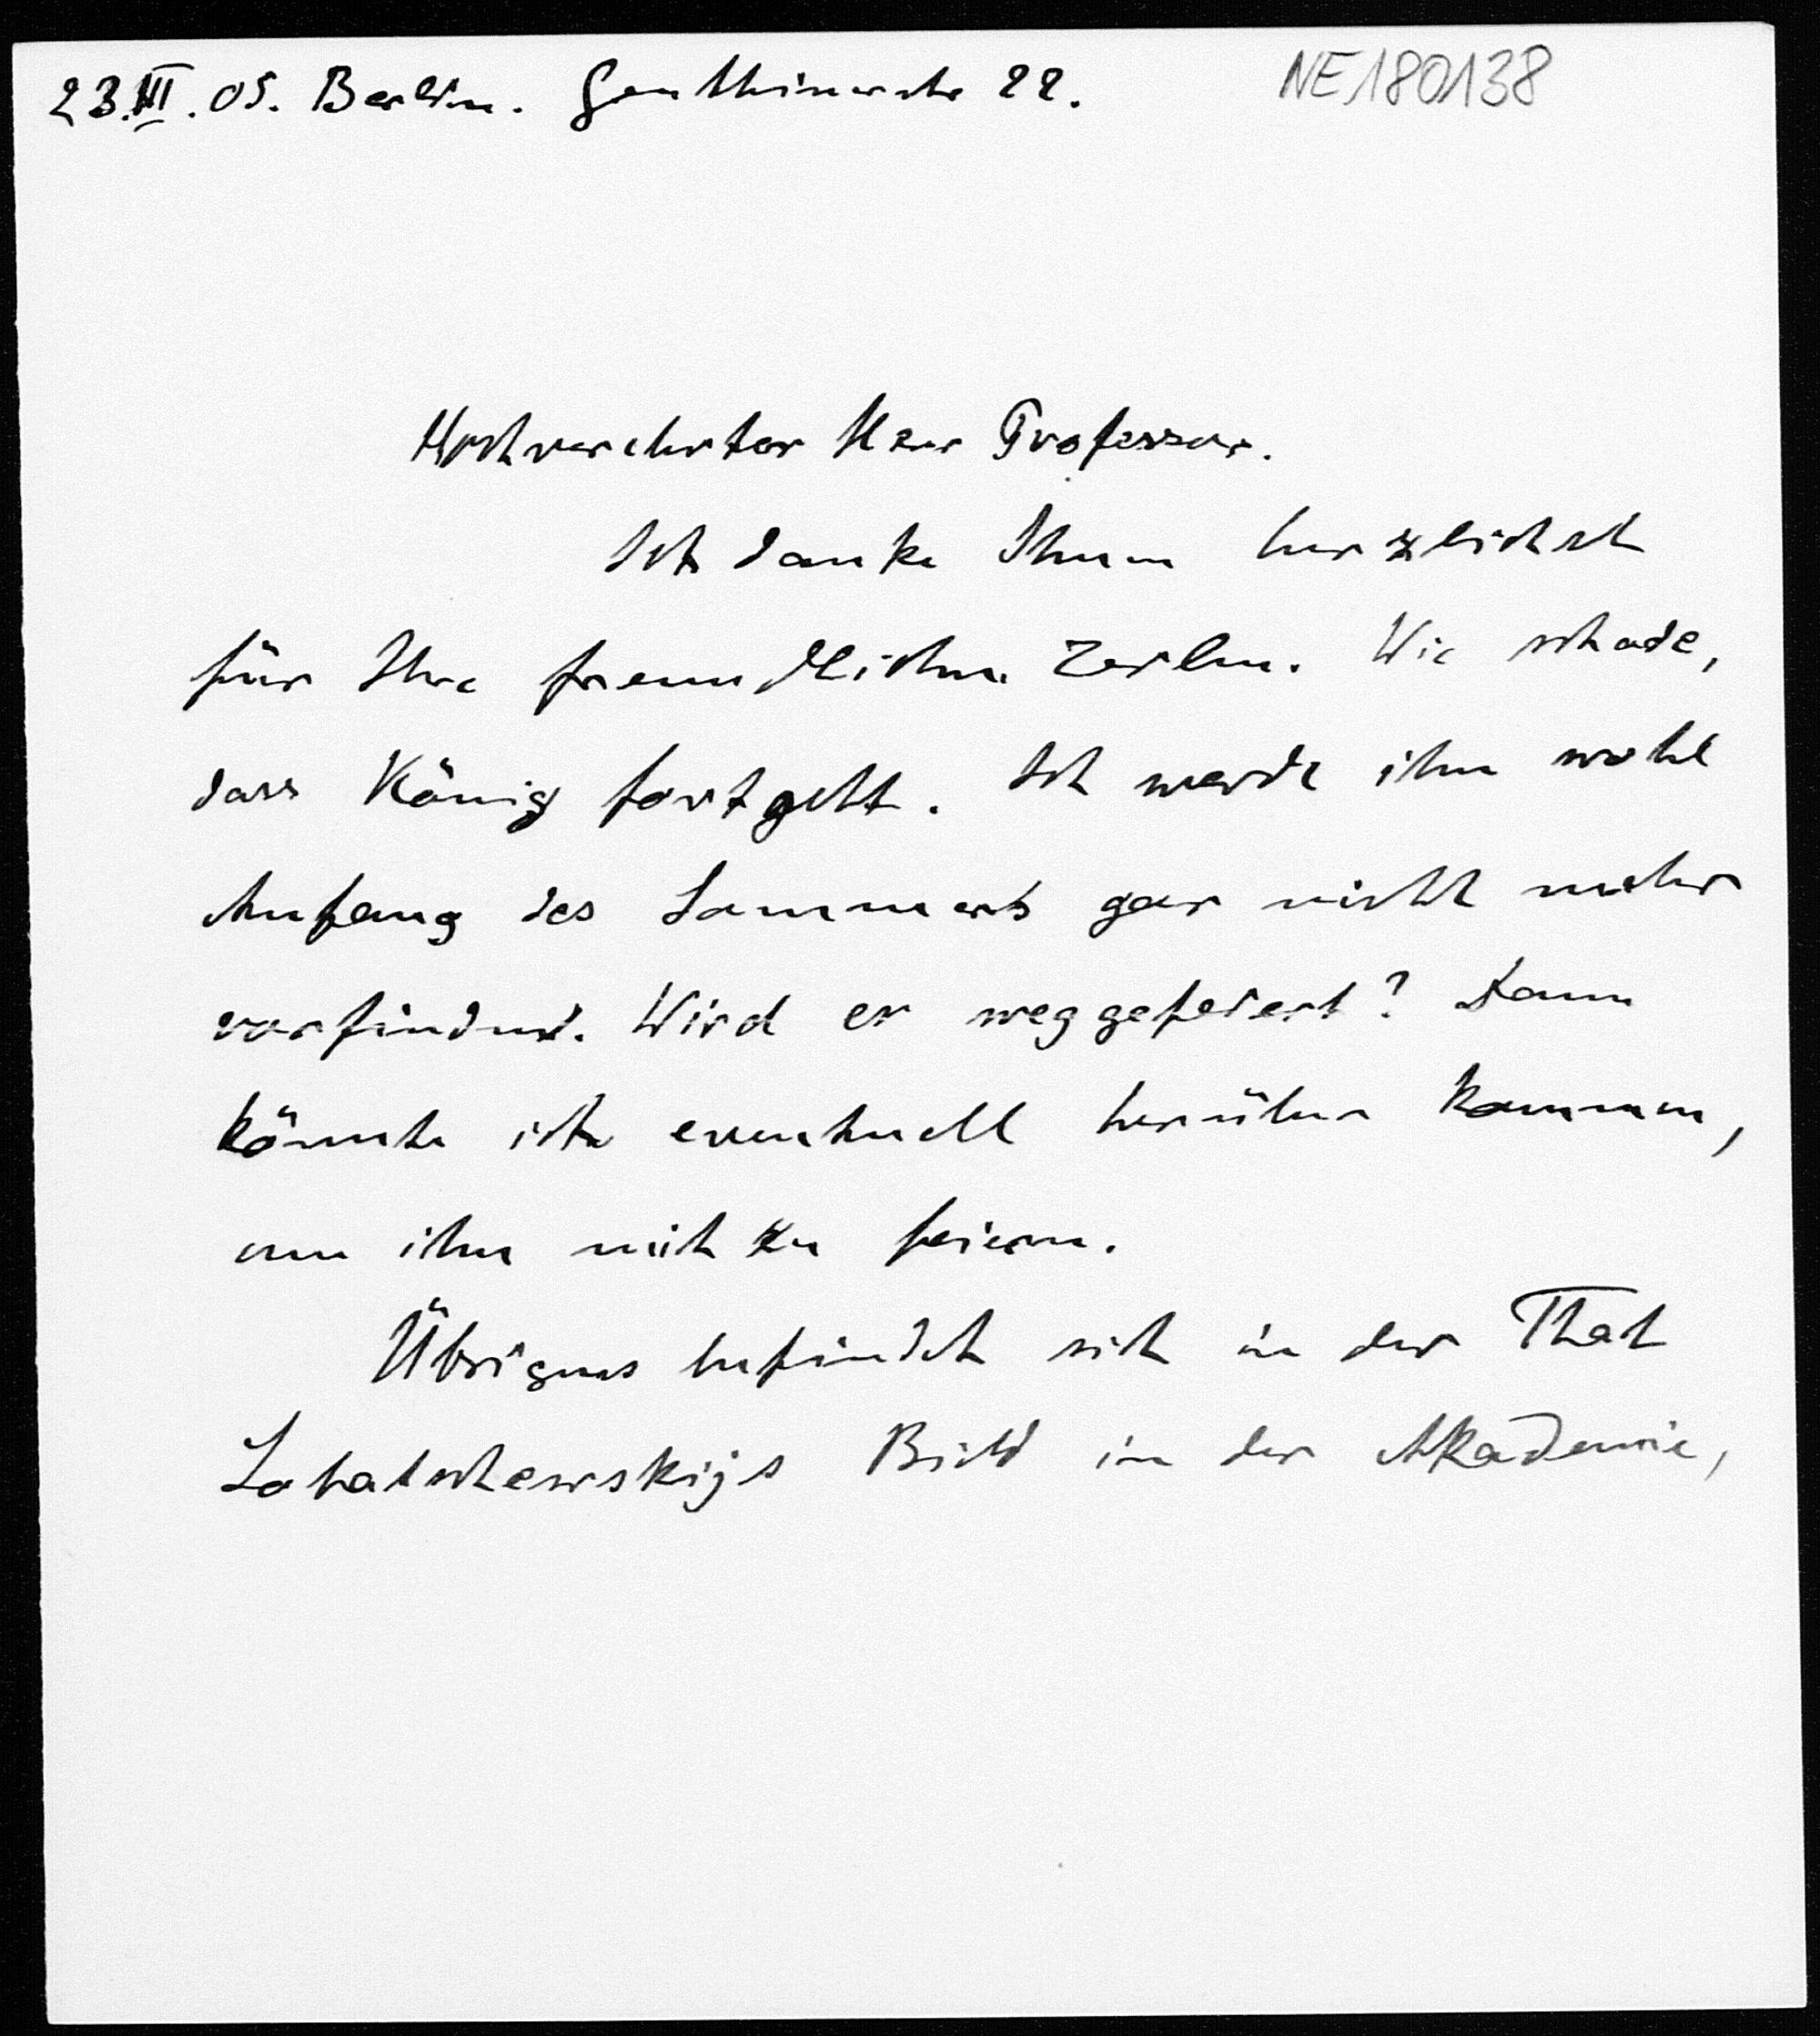 23.III.05. Berlin. Genthinerstr 22.
NE 180138
Hochverehrter Herr Professor.
Ich danke Ihnen herzlichst
für Ihre freundlichen Zeilen. Wie schade,
dass König fortgeht. Ich werde ihn wohl
Anfang des Sommers gar nicht mehr
vorfinden. Wird er weggefeiert? Dann
könnte ich eventuell herüber kommen,
um ihn mit zu feiern.
Übrigens befindet sich in der That
Lobatschewskijs Bild in der Akademie,